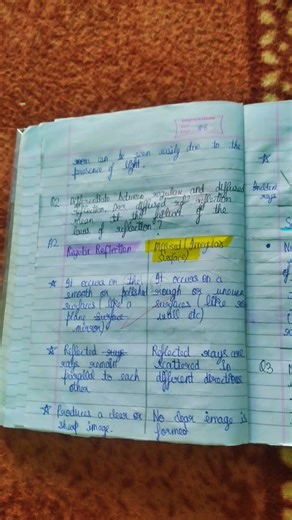 room can be seen easily due to the
presence of light.
Q2 Differentiate between regular and diffused
reflection. Does diffused reflection
mean it the failure of the
laws of reflection?
A2
Regular Reflection
Diffused (Irregular
surface)
☆ It occurs on the
smooth or polished
surfaces (like a
plane surface
mirror)
It occurs on a
rough or uneven
surfaces (like
wall etc)
☆ Reflected rays
rays remain
parallel to each
other
Reflected rays are
scattered in
different directions
☆ Produces a clear or
sharp image.
No clear image is
formed
rays
Q3